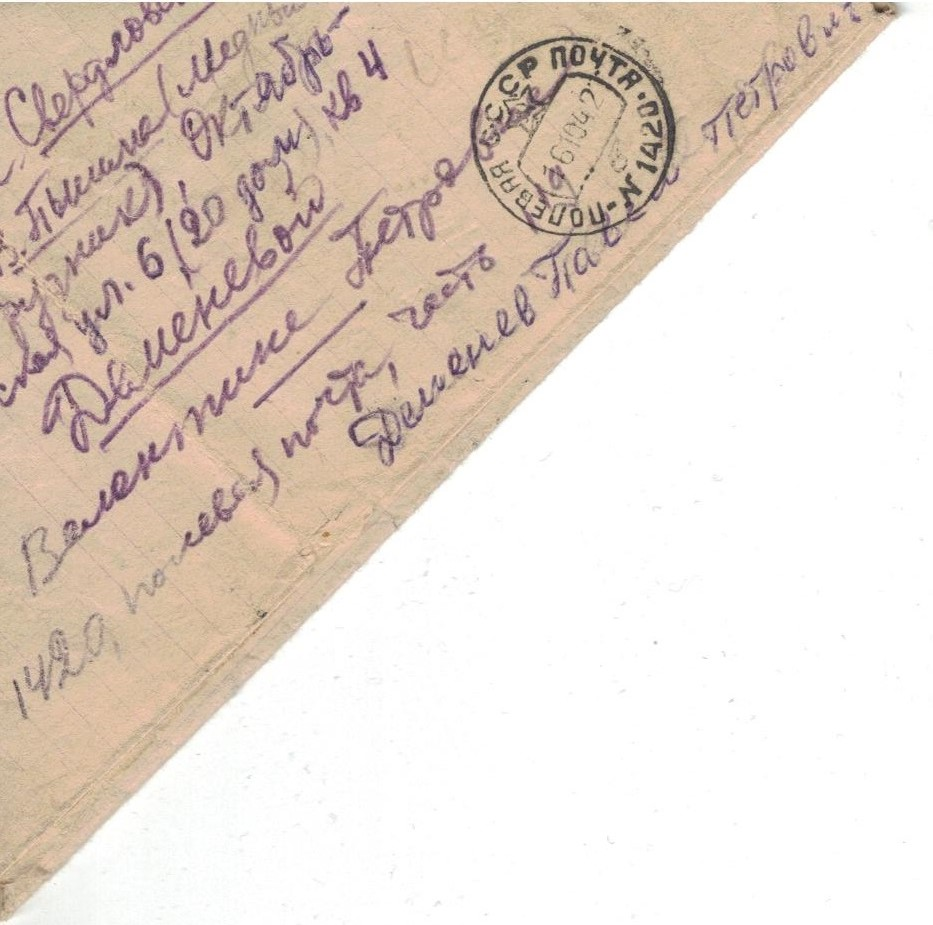 г. Свердловск
В. Пышма (Медный
рудник), Октябрь-
ская ул. 6/20 дом, кв 4
Деменевой
Валентине Петровне
1420, полевая почта, часть
Деменев Павел Петрович
СССР ПОЧТА • 02
ПОЛЕВАЯ - № 1420
16 10 42